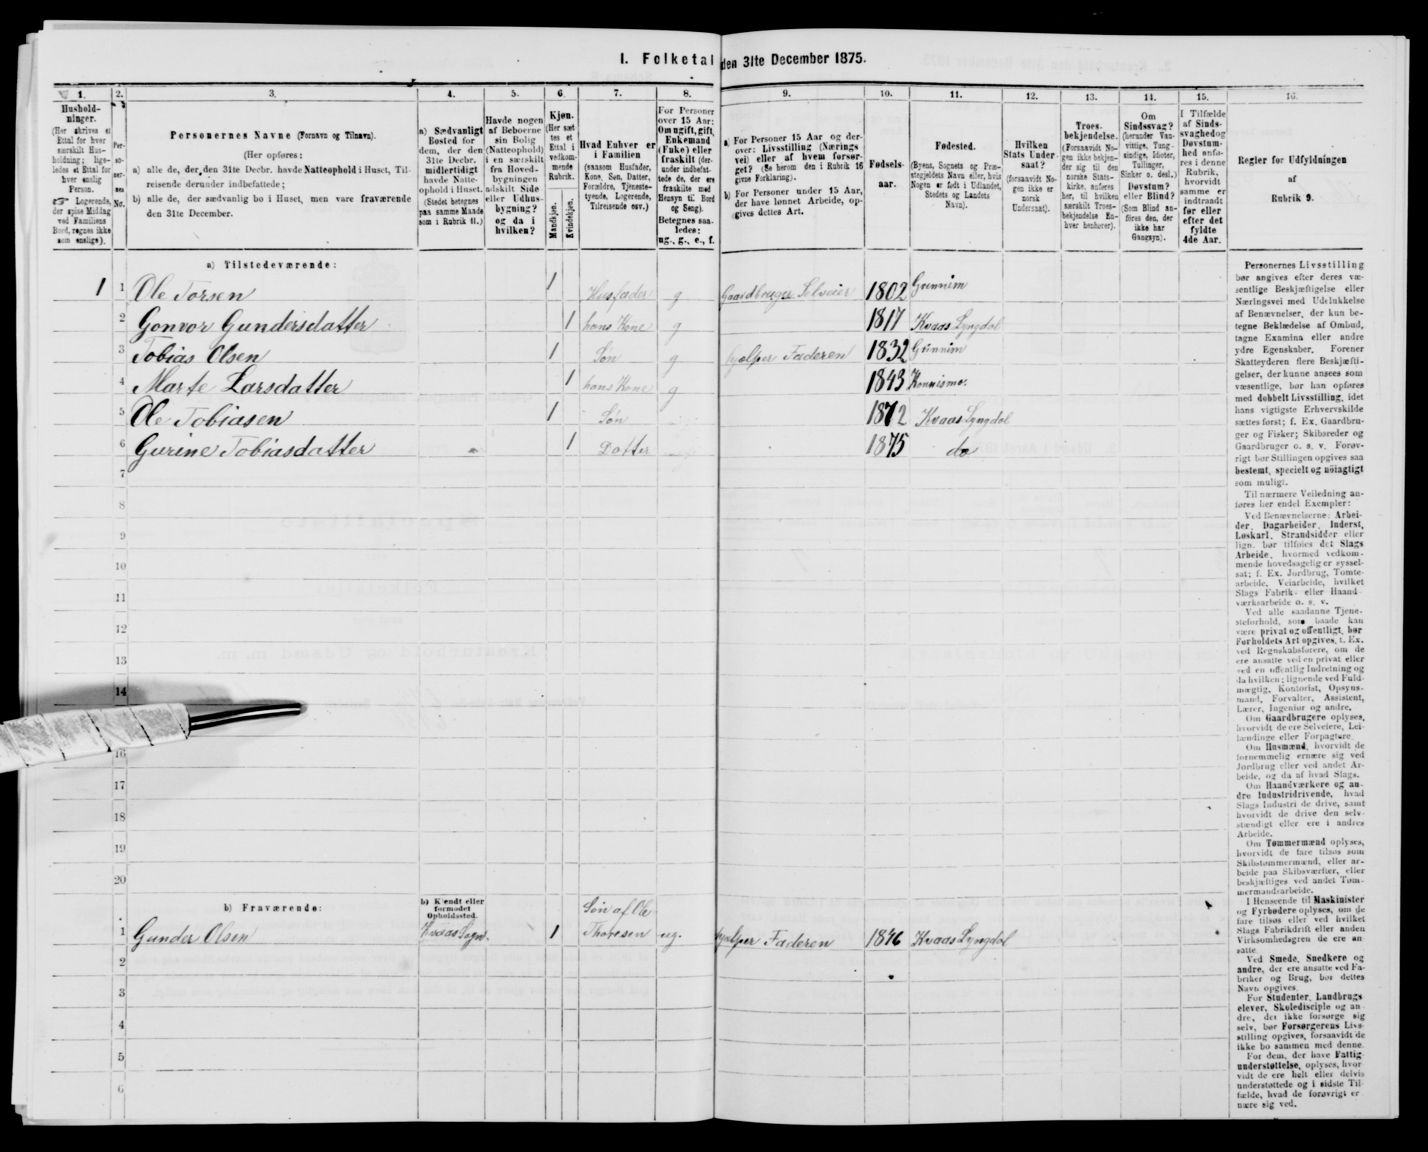 I. Folketal den 31te December 1875.
1. 2. 3. 4. 5. 6. 7. 8. 9. 10. 11. 12. 13. 14. 15. 16.
Husholdninger.
(Her skrives et
Ettal for hver
særskilt Husholdning; ligeledes et Ettal for
hver enslig
Person.
☞ Logerende,
der spise Middag
ved Familiens
Bord, regnes ikke
som enslige).
Personernes No.
Personernes Navne (Fornavn og Tilnavn).
(Her opføres:
a) alle de, der den 31te Decbr. havde Natteophold i Huset, Tilreisende derunder indbefattede;
b) alle de, der sædvanlig bo i Huset, men vare fraværende
den 31te December.
a) Sædvanligt
Bosted for
dem, der den
31te Decbr.
midlertidigt
havde Natteophold i Huset.
(Stedet betegnes
paa samme Maade
som i Rubrik 11.)
Havde nogen
af Beboerne
sin Bolig
(Natteophold)
i en særskilt
fra Hovedbygningen
adskilt Side
eller Udhusbygning?
og da i
hvilken?
Kjøn.
(Her sættes et
Ettal i
vedkommende
Rubrik.
Mandkjøn.
Kvindekjøn.
Hvad Enhver er
i Familien
(saasom Husfader,
Kone, Søn, Datter,
Forældre, Tjenestetyende, Logerende,
Tilreisende osv.)
For Personer
over 15 Aar:
Om ugift, gift,
Enkemand
(Enke) eller
fraskilt (derunder indbefattede de, der ere
fraskilte med
Hensyn til Bord
og Seng).
Betegnes saaledes:
ug., g., e., f.
a) For Personer 15 Aar og derover: Livsstilling (Næringsvei) eller af hvem forsørget? (Se herom den i Rubrik 16
givne Forklaring).
b) For Personer under 15 Aar,
der have lønnet Arbeide, opgives dettes Art.
Fødselsaar.
Fødested.
(Byens, Sognets og Præstegjeldets Navn eller, hvis
Nogen er født i Udlandet,
Stedets og Landets
Navn).
Hvilken
Stats Undersaat?
(forsaavidt Nogen ikke er
norsk
Undersaat).
Troesbekjendelse.
(Forsaavidt Nogen ikke bekjender sig til den
norske Statskirke, anføres
her, til hvilken
særskilt Troesbekjendelse Enhver henhører).
Om
Sindssvag?
(herunder Vanvittige, Tungsindige, Idioter,
Tullinger,
Sinker o. desl.)
Døvstum?
eller Blind?
(Som Blind anføres den, der
ikke har
Gangsyn).
I Tilfælde
af Sindssvaghed og
Døvstumhed anføres i denne
Rubrik,
hvorvidt
samme er
indtraadt
før eller
efter det
fyldte
4de Aar.
Regler for Udfyldningen
af
Rubrik 9.
a) Tilstedeværende:
1 1 Ole Torsen 1 Husfader g Gaardbruger Selveier 1802 Grunnim
2 Gonvor Gundersdatter 1 hans Kone g 1817 Kvaas Lyngdal
3 Tobias Olsen 1 Søn g hjælper Faderen 1832 Grunnim
4 Marte Larsdatter 1 hans Kone g 1843
5 Ole Tobiasen 1 Søn 1872 Kvaas Lyngdal
6 Gurine Tobiasdatter 1 Datter 1875 do
7
8
9
10
11
12
13
14
16
17
18
19
20
b) Fraværende:
b) Kjendt eller
formodet
Opholdssted.
1 Gunder Olsen Kvaas Sogn. 1 Søn af Ole Thoresen ug. hjælper Faderen 1846 Kvaas Lyngdal
2
3
4
5
6
Personernes Livsstilling
bør angives efter deres væsentlige Beskjæftigelse eller
Næringsvei med Udelukkelse
af Benævnelser, der kun betegne Beklædelse af Ombud,
tagne Examina eller andre
ydre Egenskaber. Forener
Skatteyderen flere Beskjæftigelser, der kunne ansees som
væsentlige, bør han opføres
med dobbelt Livsstilling, idet
hans vigtigste Erhvervskilde
sættes først; f. Ex. Gaardbruger og Fisker; Skibsreder og
Gaardbruger o. s. v. Forøvrigt bør Stillingen opgives saa
bestemt, specielt og nøiagtigt
som muligt.
Til nærmere Veiledning anføres her endel Exempler:
Ved Benævnelserne: Arbeider, Dagarbeider, Inderst,
Løskarl, Strandsidder eller
lign. bør tilføies det Slags
Arbeide, hvormed vedkommende hovedsagelig er sysselsat; f. Ex. Jordbrug, Tomtearbeide, Veiarbeide, hvilket
Slags Fabrik- eller Haandværksarbeide o. s. v.
Ved alle saadanne Tjenesteforhold, som baade kan
være privat og offentligt, bør
Forholdets Art opgives, f. Ex.
ved Regnskabsførere, om de
ere ansatte ved en privat eller
ved en offentlig Indretning og
da hvilken; lignende ved Fuldmægtig, Kontorist, Opsynsmand, Forvalter, Assistent,
Lærer, Ingeniør og andre.
Om Gaardbrugere oplyses,
hvorvidt de ere Selveiere, Leilændinge eller Forpagtere.
Om Husmænd, hvorvidt de
fornemmelig ernære sig ved
Jordbrug eller ved andet Arbeide, og da af hvad Slags.
Om Haandværkere og andre Industridrivende, hvad
Slags Industri de drive, samt
hvorvidt de drive den selvstændigt eller ere i andres
Arbeide.
Om Tømmermænd oplyses,
hvorvidt de fare tilsøs som
Skibstømmermænd, eller arbeide paa Skibsværfter, eller
beskjæftiges ved andet Tømmermandsarbeide.
I Henseende til Maskinister
og Fyrbødere oplyses, om de
fare tilsøs eller ved hvilket
Slags Fabrikdrift eller anden
Virksomhedsgren de ere ansatte.
Ved Smede, Snedkere og
andre, der ere ansatte ved Fabriker og Brug, bør dettes
Navn opgives.
For Studenter, Landbrugselever, Skoledisciple og andre, der ikke forsørge sig
selv, bør Forsørgerens Livsstilling opgives, forsaavidt de
ikke bo sammen med denne.
For dem, der have Fattigunderstøttelse, oplyses, hvorvidt de ere helt eller delvis
understøttede og i sidste Tilfælde, hvad de forøvrigt ernære sig ved.